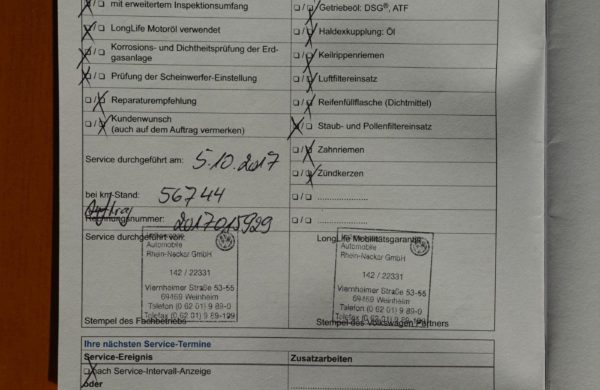 ❏/❏ mit erweitertem Inspektionsumfang
❏/❏ Getriebeöl: DSG®, ATF
❏/❏ LongLife Motoröl verwendet
❏/❏ Haldexkupplung: Öl
❏/❏ Korrosions- und Dichtheitsprüfung der Erd-
gasanlage
❏/❏ Keilrippenriemen
❏/❏ Prüfung der Scheinwerfer-Einstellung
❏/❏ Luftfiltereinsatz
❏/❏ Reparaturempfehlung
❏/❏ Reifenfüllflasche (Dichtmittel)
❏/❏ Kundenwunsch
(auch auf dem Auftrag vermerken)
❏/❏ Staub- und Pollenfiltereinsatz
❏/❏ Zahnriemen
Service durchgeführt am: 5.10.2017
❏/❏ Zündkerzen
bei km-Stand: 56744
❏/❏ ....................
Auftrag
Rechnungsnummer: 2017015929
❏/❏ ....................
Service durchgeführt von:
LongLife Mobilitätsgarantie
Automobile
Rhein-Neckar GmbH
142 / 22331
Viernheimer Straße 53-55
69469 Weinheim
Telefon (0 62 01) 9 89-0
Telefax (0 62 01) 9 89-199
Stempel des Fachbetriebs
Automobile
Rhein-Neckar GmbH
142 / 22331
Viernheimer Straße 53-55
69469 Weinheim
Telefon (0 62 01) 9 89-0
Telefax (0 62 01) 9 89-199
Stempel des Volkswagen Partners
Ihre nächsten Service-Termine
Service-Ereignis
Zusatzarbeiten
❏ nach Service-Intervall-Anzeige
oder